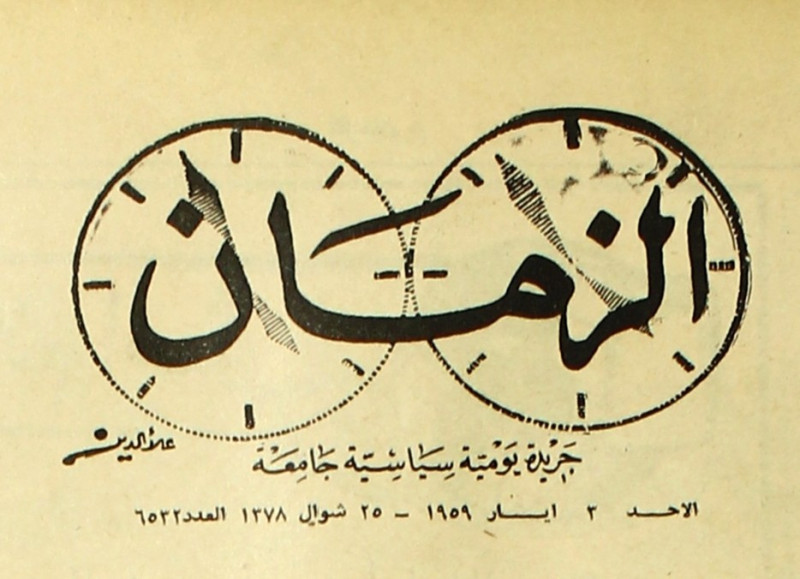 الزمان
علاءالدين
جَرْيَدة يَوْميَّة سِيَاسِيَّة جَامِعَة
الاحد ٣ ايار ١٩٥٩ – ٢٥ شوال ١٣٧٨ العدد٦٥٣٢